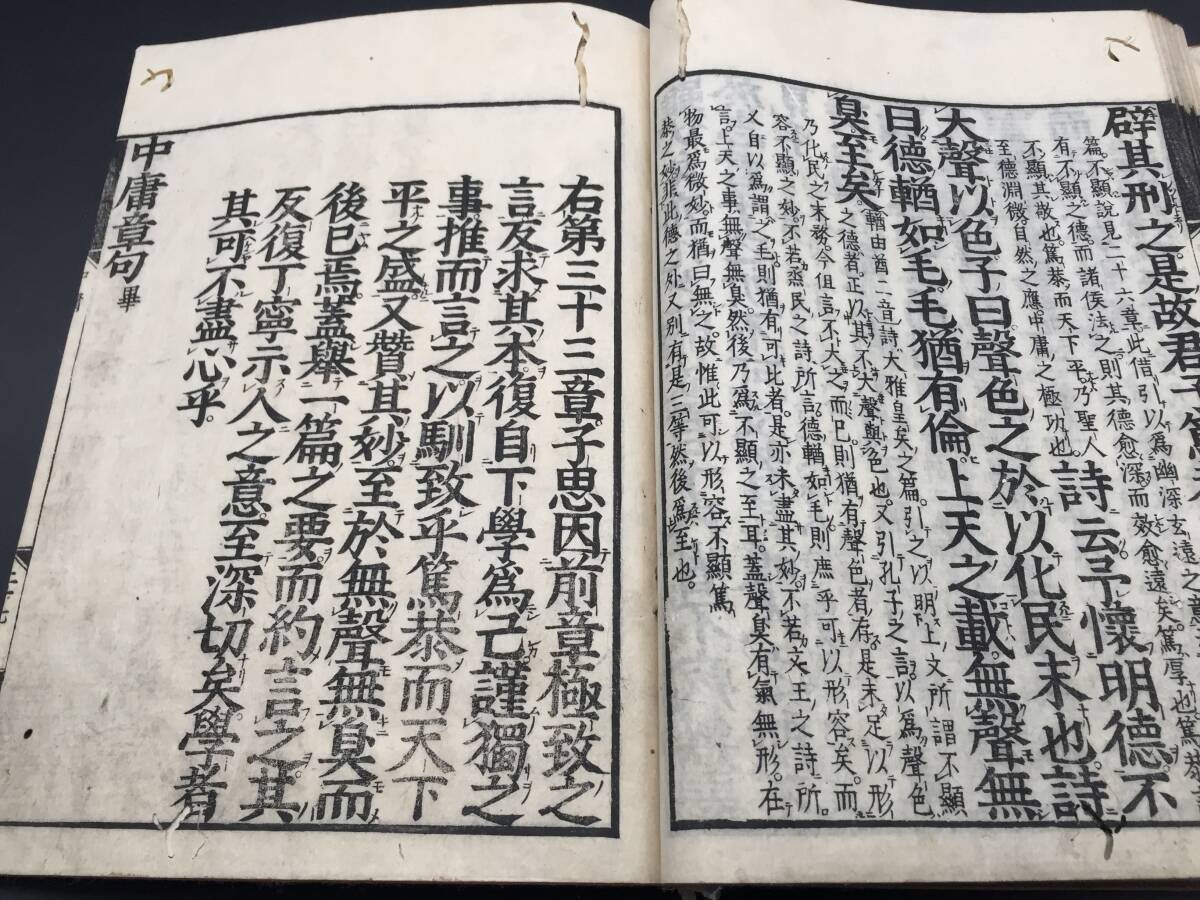 辟其刑之是故君子篤
篇不顯說見二十六章此借引以爲幽深玄遠之意
有不顯之德而諸侯法之則其德愈深而效愈遠矣篤厚也篤恭
不顯其敬也篤恭而天下平乃聖人
至德淵微自然之應中庸之極功也
詩云予懷明德不
大聲以色子曰聲色之於以化民末也詩
曰德輶如毛毛猶有倫上天之載無聲無
臭至矣
輶由酉二音詩大雅皇矣之篇引之以明上文所謂不顯
之德者正以其不大聲與色也又引孔子之言以爲聲色
乃化民之末務今但言不大之而已則猶有聲色者存是未足以形
容不顯之妙不若烝民之詩所言德輶如毛則庶乎可以形容矣而
又自以爲謂之毛則猶有可比者是亦未盡其妙不若文王之詩所
言上天之事無聲無臭然後乃爲不顯之至耳蓋聲臭有氣無形在
物最爲微妙而猶曰無之故惟此可以形容不顯篤
恭之妙非此德之外又別有是三等然後爲至也
右第三十三章子思因前章極致之
言反求其本復自下學爲己謹獨之
事推而言之以馴致乎篤恭而天下
平之盛又贊其妙至於無聲無臭而
後已焉蓋舉一篇之要而約言之其
反復丁寧示人之意至深切矣學者
其可不盡心乎
中庸章句畢